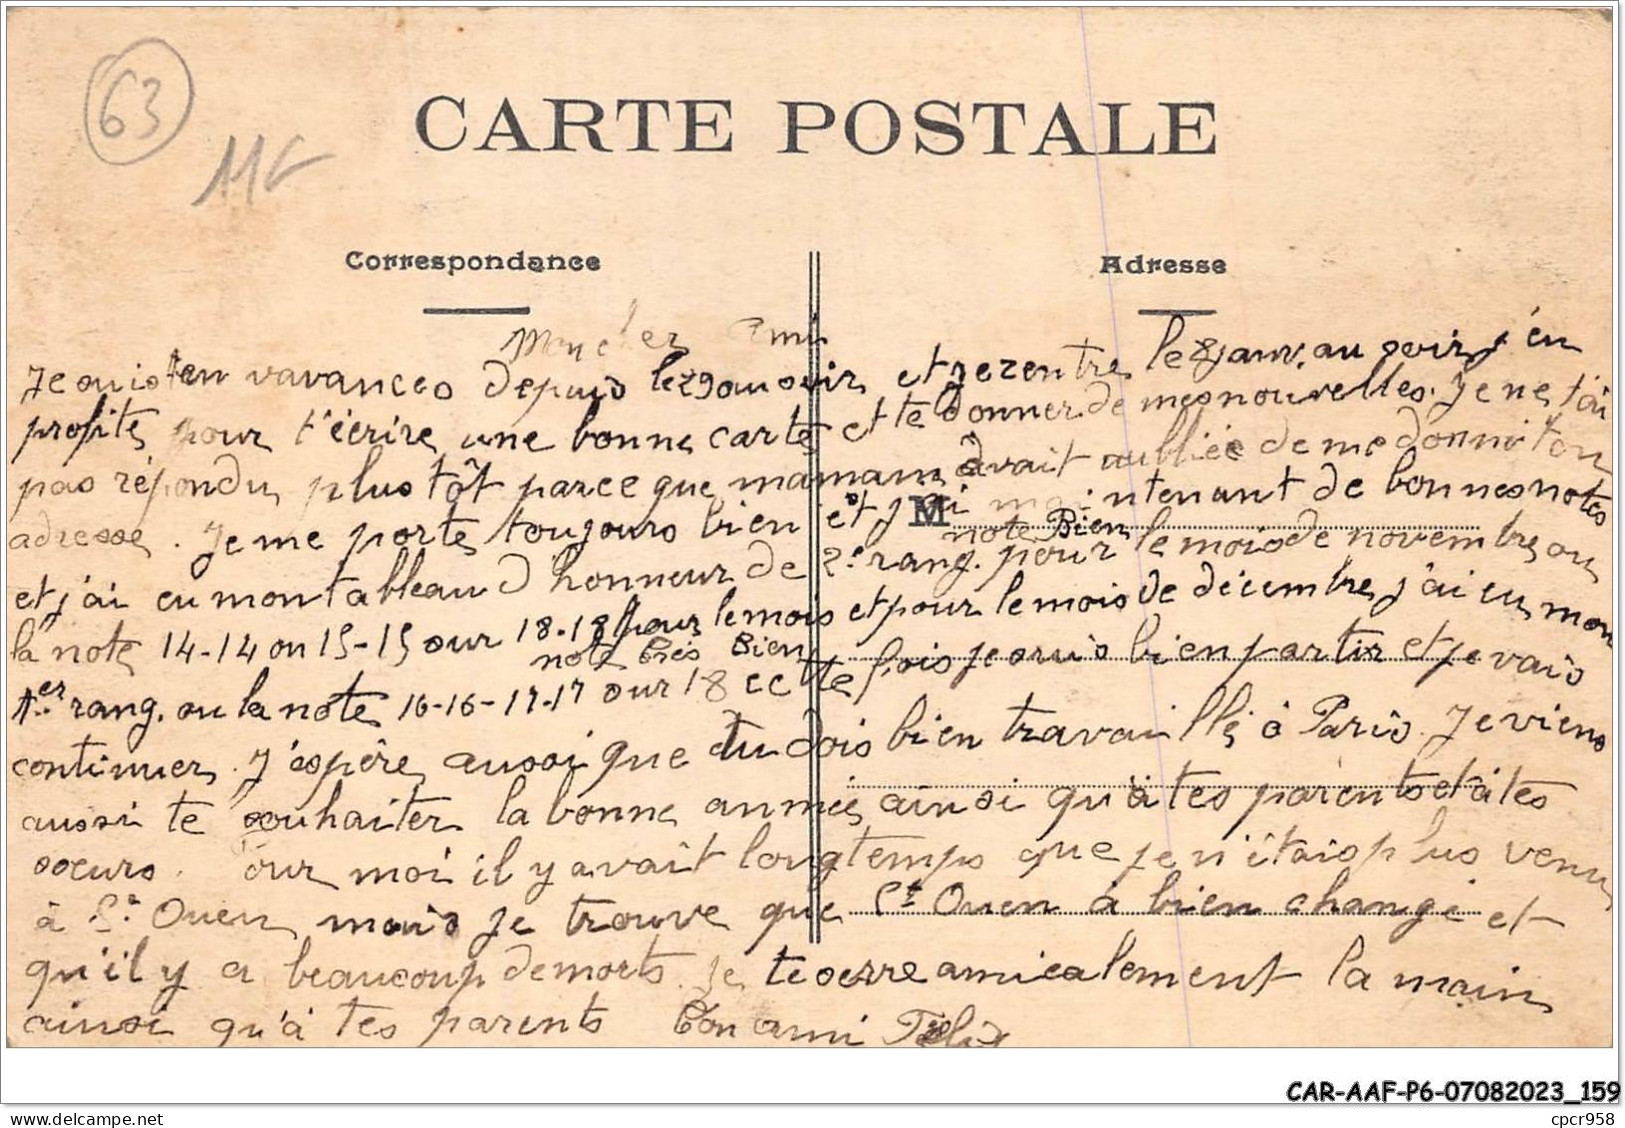 63
11€
CARTE POSTALE
Correspondance
Adresse
Mon cher Ami
Je suis en vavances depuis le 29 au soir et je rentre le 8 janv. au soir j'en
profite pour t'écrire une bonne carte et te donner de mes nouvelles. Je ne t'ai
pas répondu plus tôt parce que mamam avait oubliée de me donné ton
adresse. Je me porte toujours bien et j'ai maintenant de bonnes notes
M
note Bien
et j'ai eu mon tableau d'honneur de 2e rang. pour le mois de novembre ou
la note 14-14 ou 15-15 sur 18-18 pour le mois et pour le mois de décembre j'ai eu mon
note Très Bien
1er rang. ou la note 16-16-17-17 sur 18 cette fois je suis bien partir et je vais
continuer. J'éspère aussi que tu dois bien travaillé à Paris. Je viens
aussi te souhaiter la bonne année ainsi qu'à tes parents et à tes
soeurs. Pour moi il y avait longtemps que je n'étais plus venu
à St Ouen mais je trouve que St Ouen à bien changé et
qu'il y a beaucoup de morts. Je te serre amicalement la main
ainsi qu'à tes parents Ton ami Félix
CAR-AAF-P6-07082023_159
cpcr958